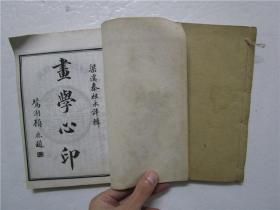 梁溪秦祖永評輯
畫學心印